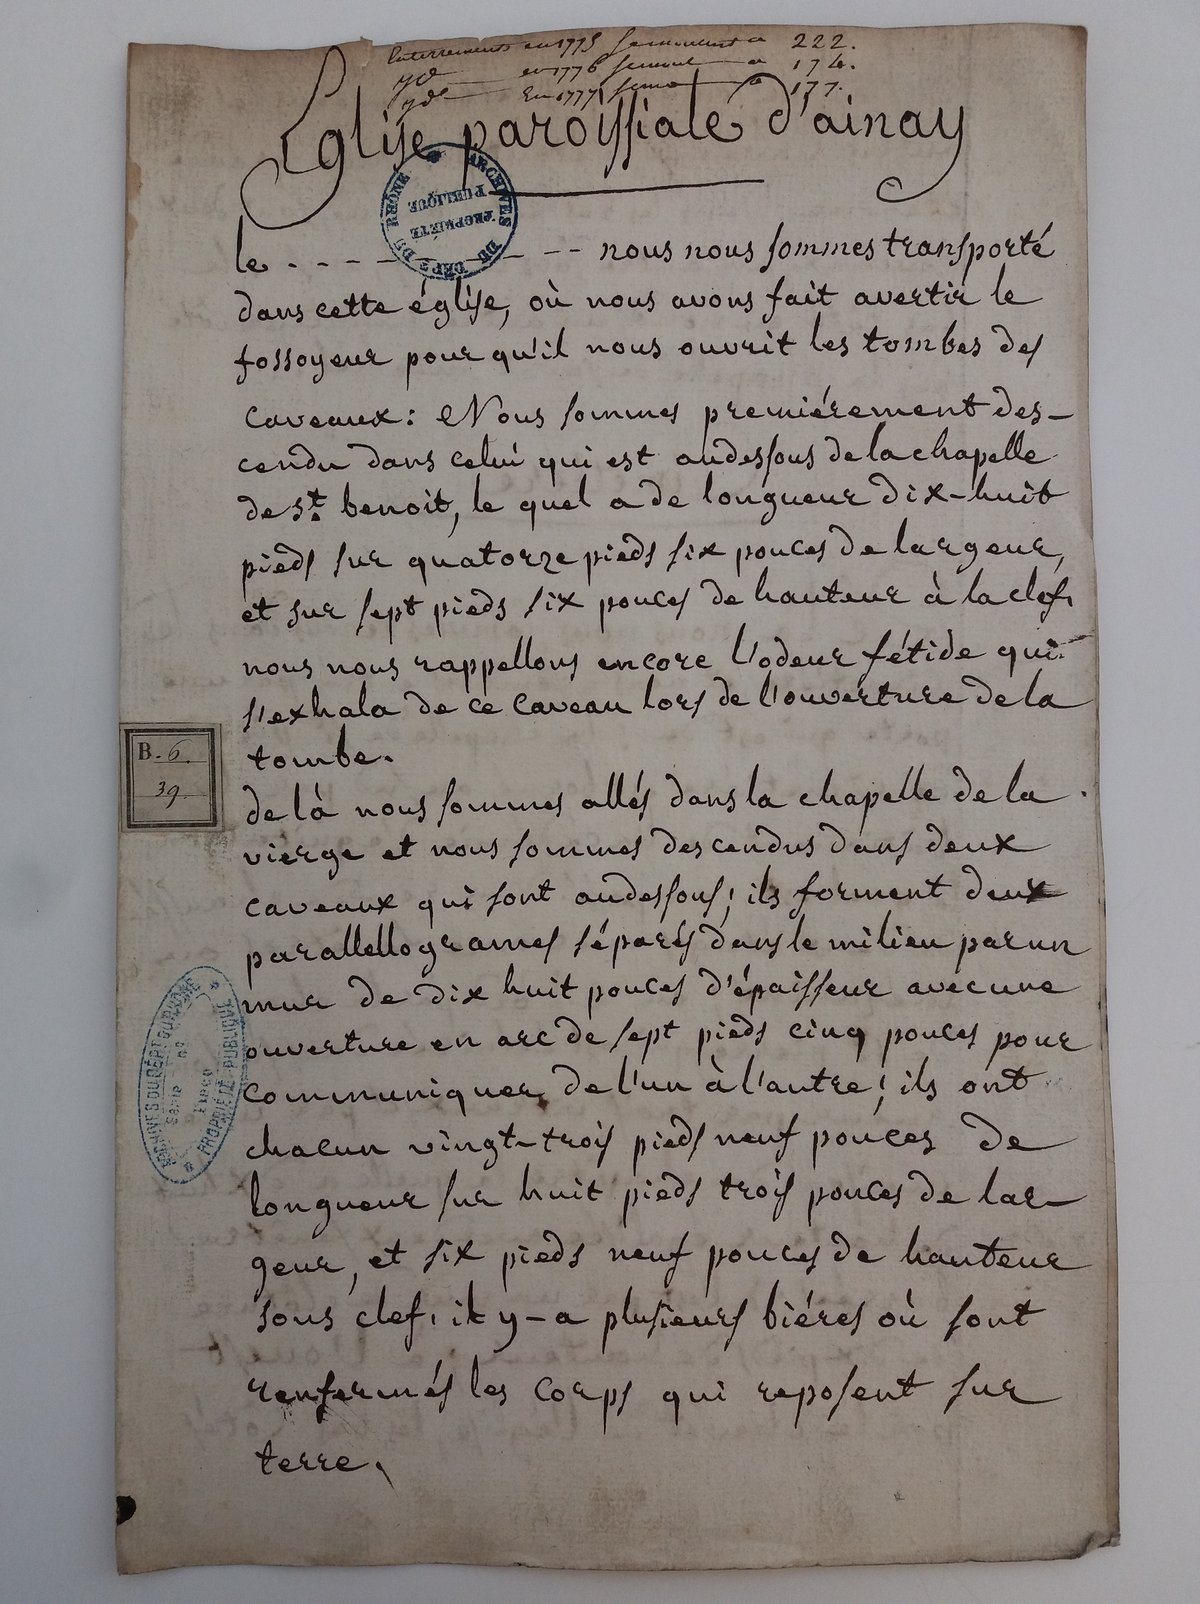 Enterrements en 1775 se montent a 222.
yd en 1776 se mont a 174.
yd En 1777 se mo a 177.
Eglise paroissiale d'ainay
ARCHIVES DU DÉPT DU RHÔNE
PROPRIÉTÉ PUBLIQUE
le . - - - - - - - - nous nous sommes transporté
dans cette église, où nous avons fait avertir le
fossoyeur pour qu'il nous ouvrit les tombes des
caveaux: Nous sommes premiérement des-
cendu dans celui qui est audessous de la chapelle
de st. benoit, le quel a de longueur dix-huit
pieds sur quatorze pieds six pouces de largeur,
et sur sept pieds six pouces de hauteur à la clef,
nous nous rappellons encore l'odeur fétide qui
s'exhala de ce caveau lors de l'ouverture de la
tombe.
B. 6.
39.
de là nous sommes allés dans la chapelle de la
vierge et nous sommes descendus dans deux
caveaux qui sont audessous; ils forment deux
parallellogrames séparés dans le milieu par un
mur de dix huit pouces d'épaisseur avec une
ouverture en arc de sept pieds cinq pouces pour
communiquer de l'un à l'autre; ils ont
chacun vingt-trois pieds neuf pouces de
longueur sur huit pieds trois pouces de lar-
geur, et six pieds neuf pouces de hauteur
sous clef. il y-a plusieurs biéres où sont
renfermés les corps qui reposent sur
terre.
ARCHIVES DU DÉPT DU RHÔNE
PROPRIÉTÉ PUBLIQUE